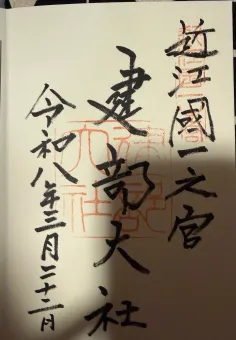 近江國一之宮
建部大社
令和八年三月二十二日